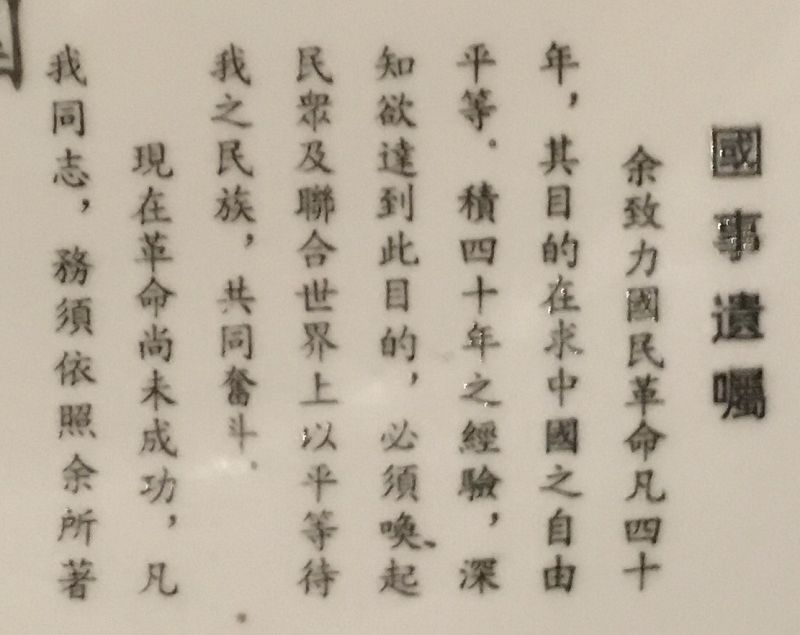 國事遺囑
余致力國民革命凡四十
年，其目的在求中國之自由
平等。積四十年之經驗，深
知欲達到此目的，必須喚起
民眾及聯合世界上以平等待
我之民族，共同奮斗。
現在革命尚未成功，凡
我同志，務須依照余所著